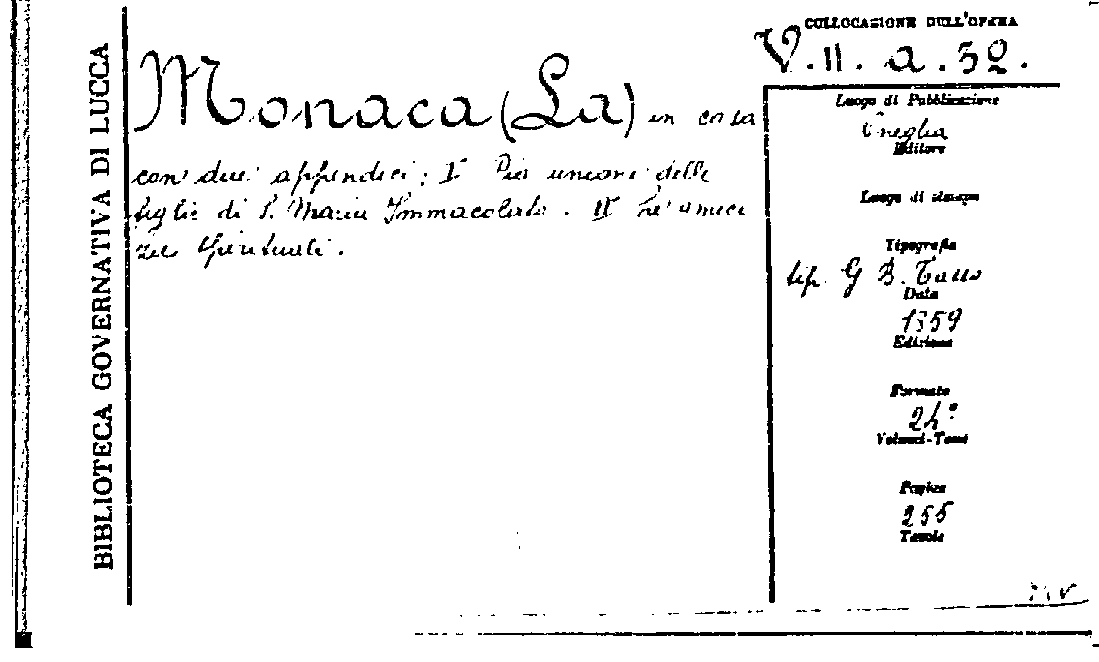 BIBLIOTECA GOVERNATIVA DI LUCCA
COLLOCAZIONE DELL'OPERA
V. 11. a. 32.
Monaca (La) in casa
con due appendici: I° Pia unione delle
figlie di S. Maria Immacolata. II° Le amici
zie spirituali.
Luogo di Pubblicazione
Oneglia
Editore
Luogo di stampa
Tipografia
tip. G B. Tasso
Data
1859
Edizione
Formato
24°
Volumi-Tomi
Pagine
255
Tavole